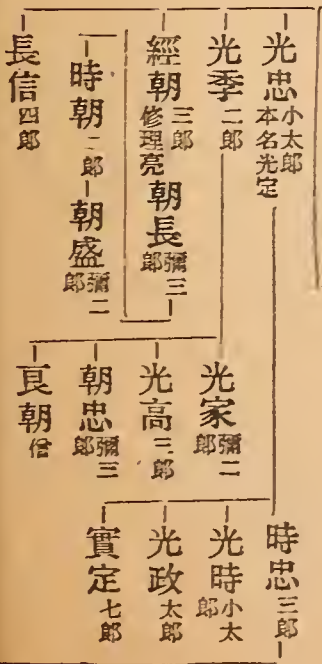 光忠 小太郎 本名光定
光季 二郎
經朝 三郎 修理亮 朝長 彌三郎
時朝 二郎 朝盛 彌二郎
長信 四郎
光家 彌二郎
光高 三郎
朝忠 彌三郎
良朝 僧
時忠 三郎
光時 小太郎
光政 太郎
實定 七郎